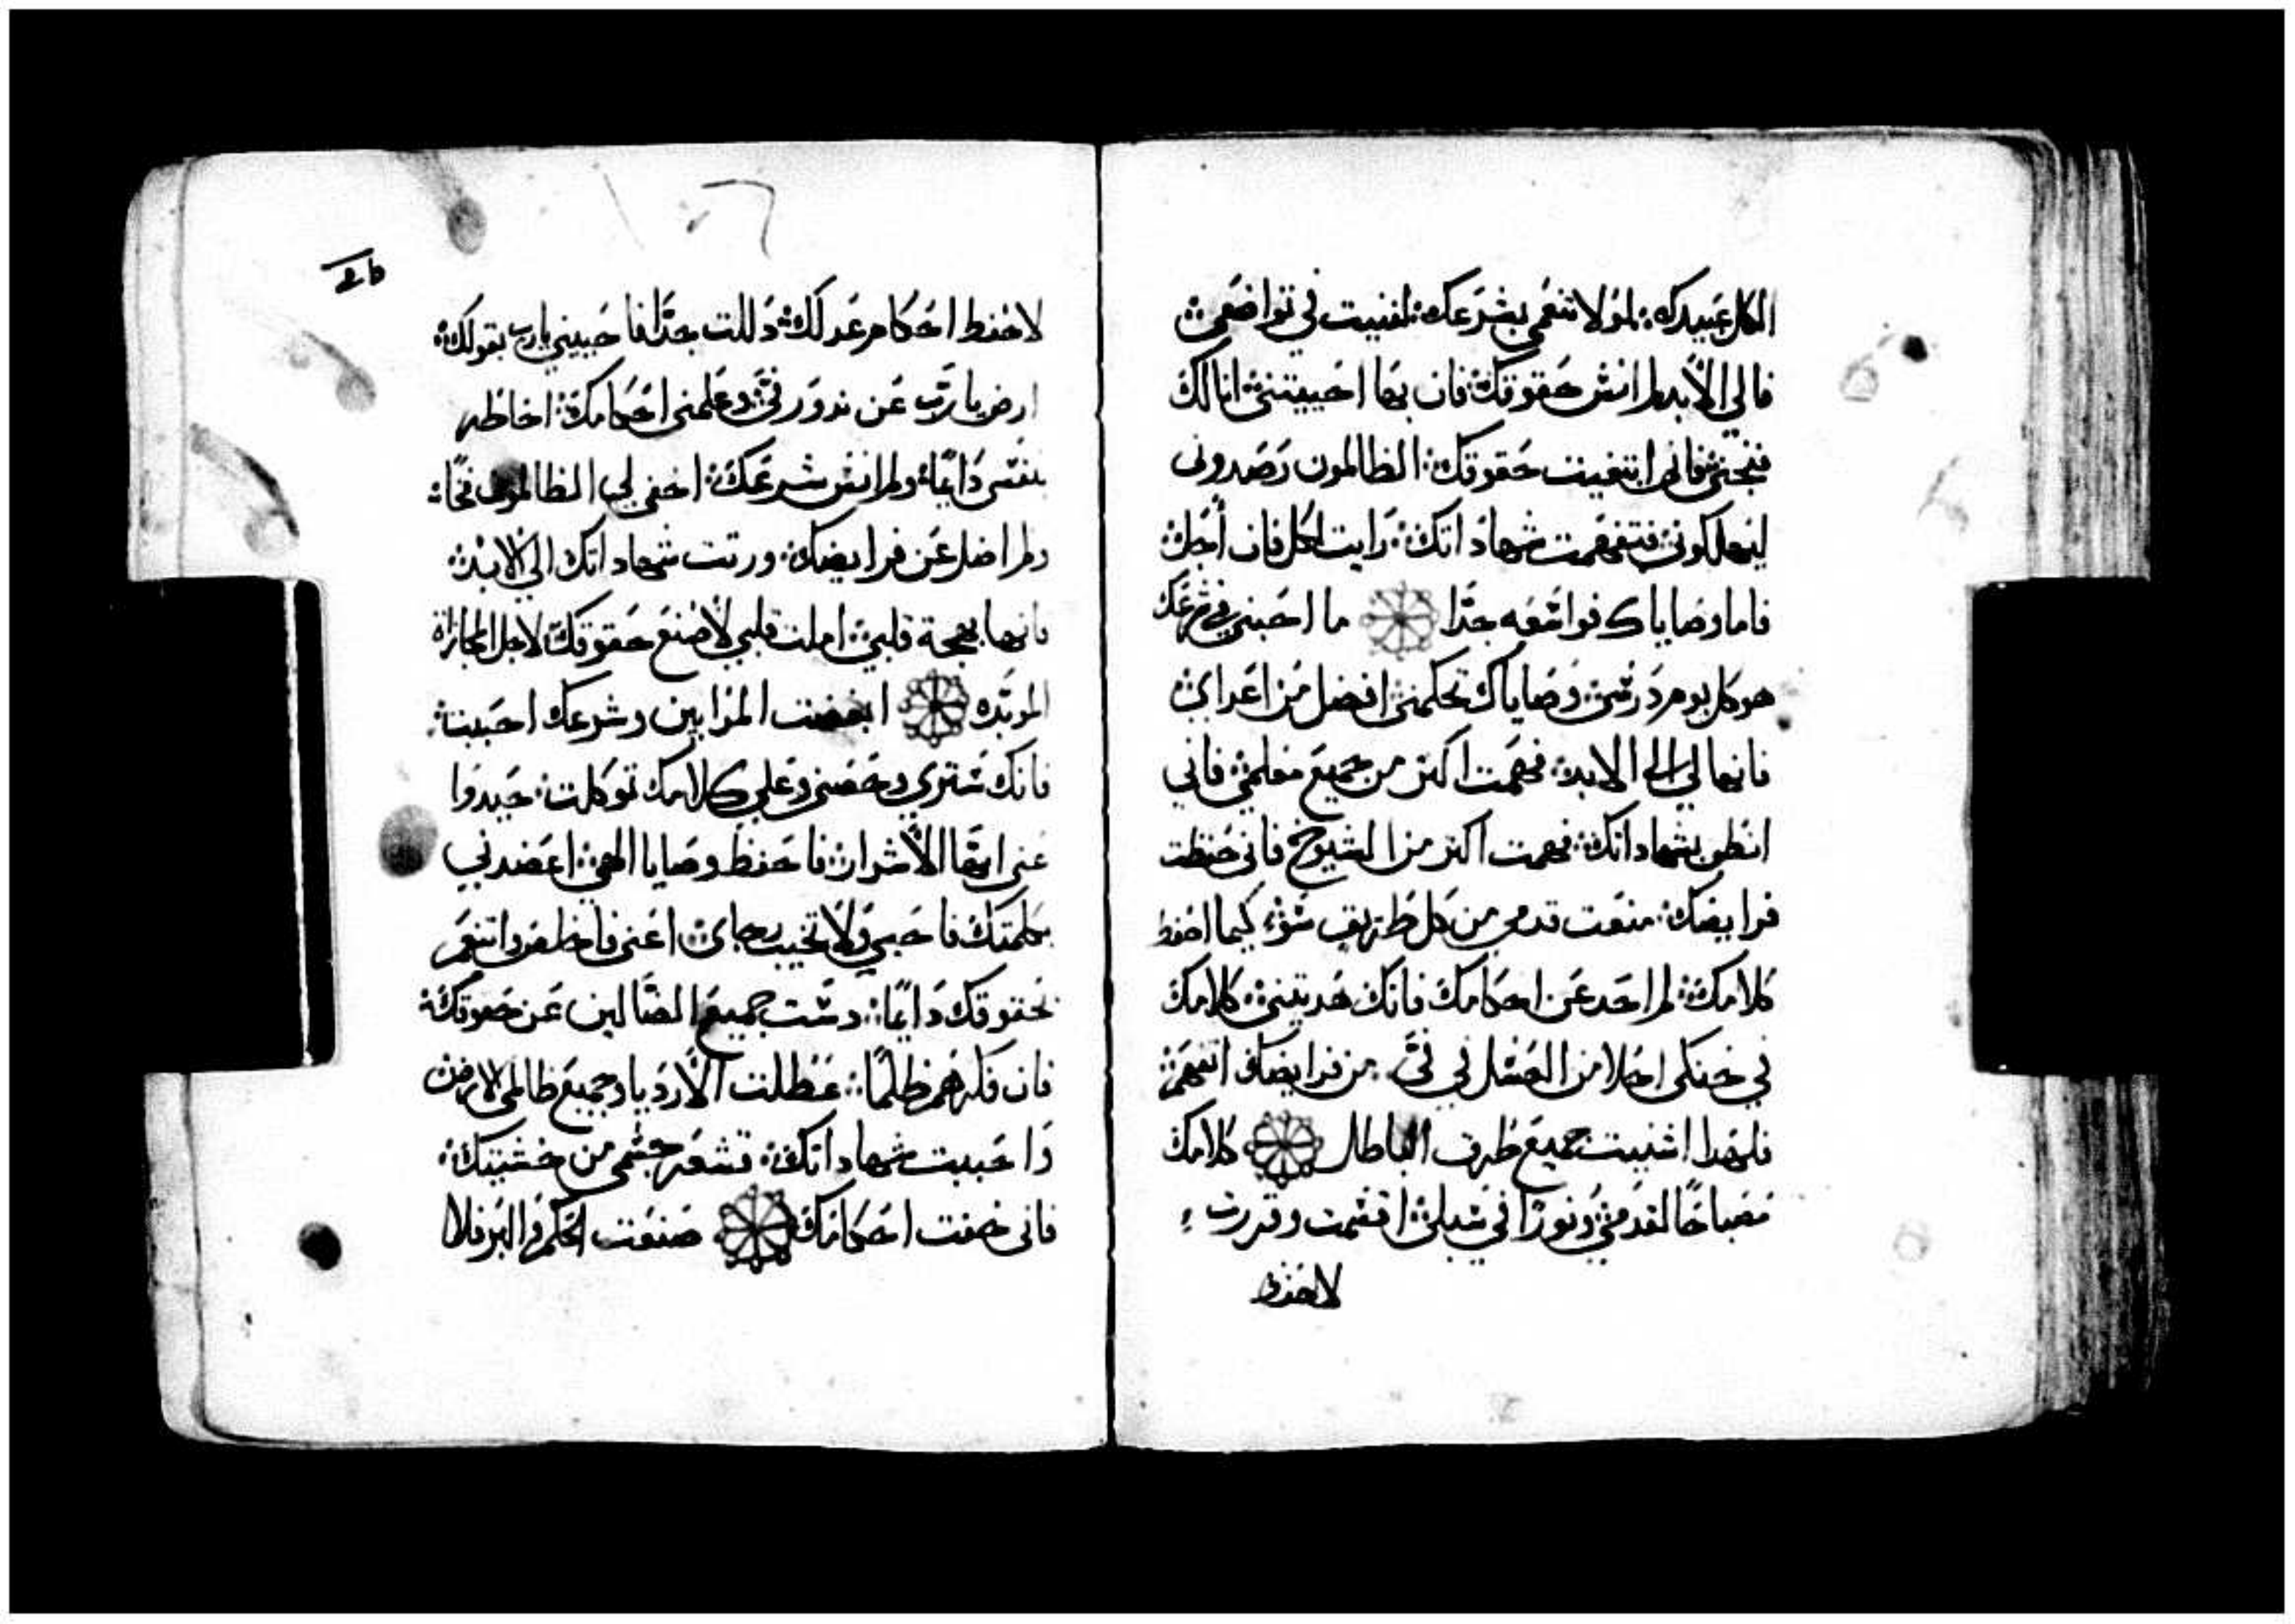 الكل عبيدك: لولا تنعمي بشرعك: لفنيت في تواضعي:
فالي الأبد لم انس حقوقك: فان بها احييتني: انا لك
فنجني فاني ابتغيت حقوقك: الظالمون رصدوني
ليهلكوني: فتفهمت شهاداتك: رايت لكل فان أجل:
فاما وصاياك فواسعه جدًا ما احبني في شرعك
هو كل يوم درسي: وصاياك تحكمني افضل من اعداي:
فانها لي الي الابد: فهمت اكتر من جميع معلمي: فاني
انطق بشهاداتك: فهمت اكتر من الشيوخ فاني حفظت
فرايضك: منعت قدمي من كل طريق سوء كيما احفظ
كلامك: لم احد عن احكامك فانك هديتني: كلامك
في حنكي احلا من العسل في فيّ. من فرايضك اتفهم:
فلهدا اشنيت جميع طرق الباطل كلامك
مصباحًا لقدمي: ونورًا في سبلي: اقسمت وقررت:
لاحفظ
26
لاحفظ احكام عدلك: دللت جدًا فاحييني يا رب بقولك:
ارض يا رب عن ندور فيّ: وعلمني احكامك: اخاطر
بنفسي دايمًا: ولم انس شرعك: اخفي لي الظالمون فخًا:
ولم اضل عن فرايضك: ورتت شهاداتك الي الابد:
فانها بهجة قلبي: املت قلبي لأصنع حقوقك: لاجل المجازاة
الموبّده ابغضت المرايين وشرعك احببت:
فانك ستري وحصني وعلي كلامك توكلت: حيدوا
عني ايها الأشرار: فاحفظ وصايا الهي: اعضدني
بكلمتك فاحيي ولا تخيب رجاي: اعني فاخلص واتنعم
بحقوقك دايمًا: دست جميع الضالين عن حقوقك:
فان فكرهم ظلمًا: عطلت الأرديا وجميع ظالمي الارض:
واحببت شهاداتك: قشعر جسمي من خشيتك:
فاني خفت احكامك صنعت الحكم والبر فلا